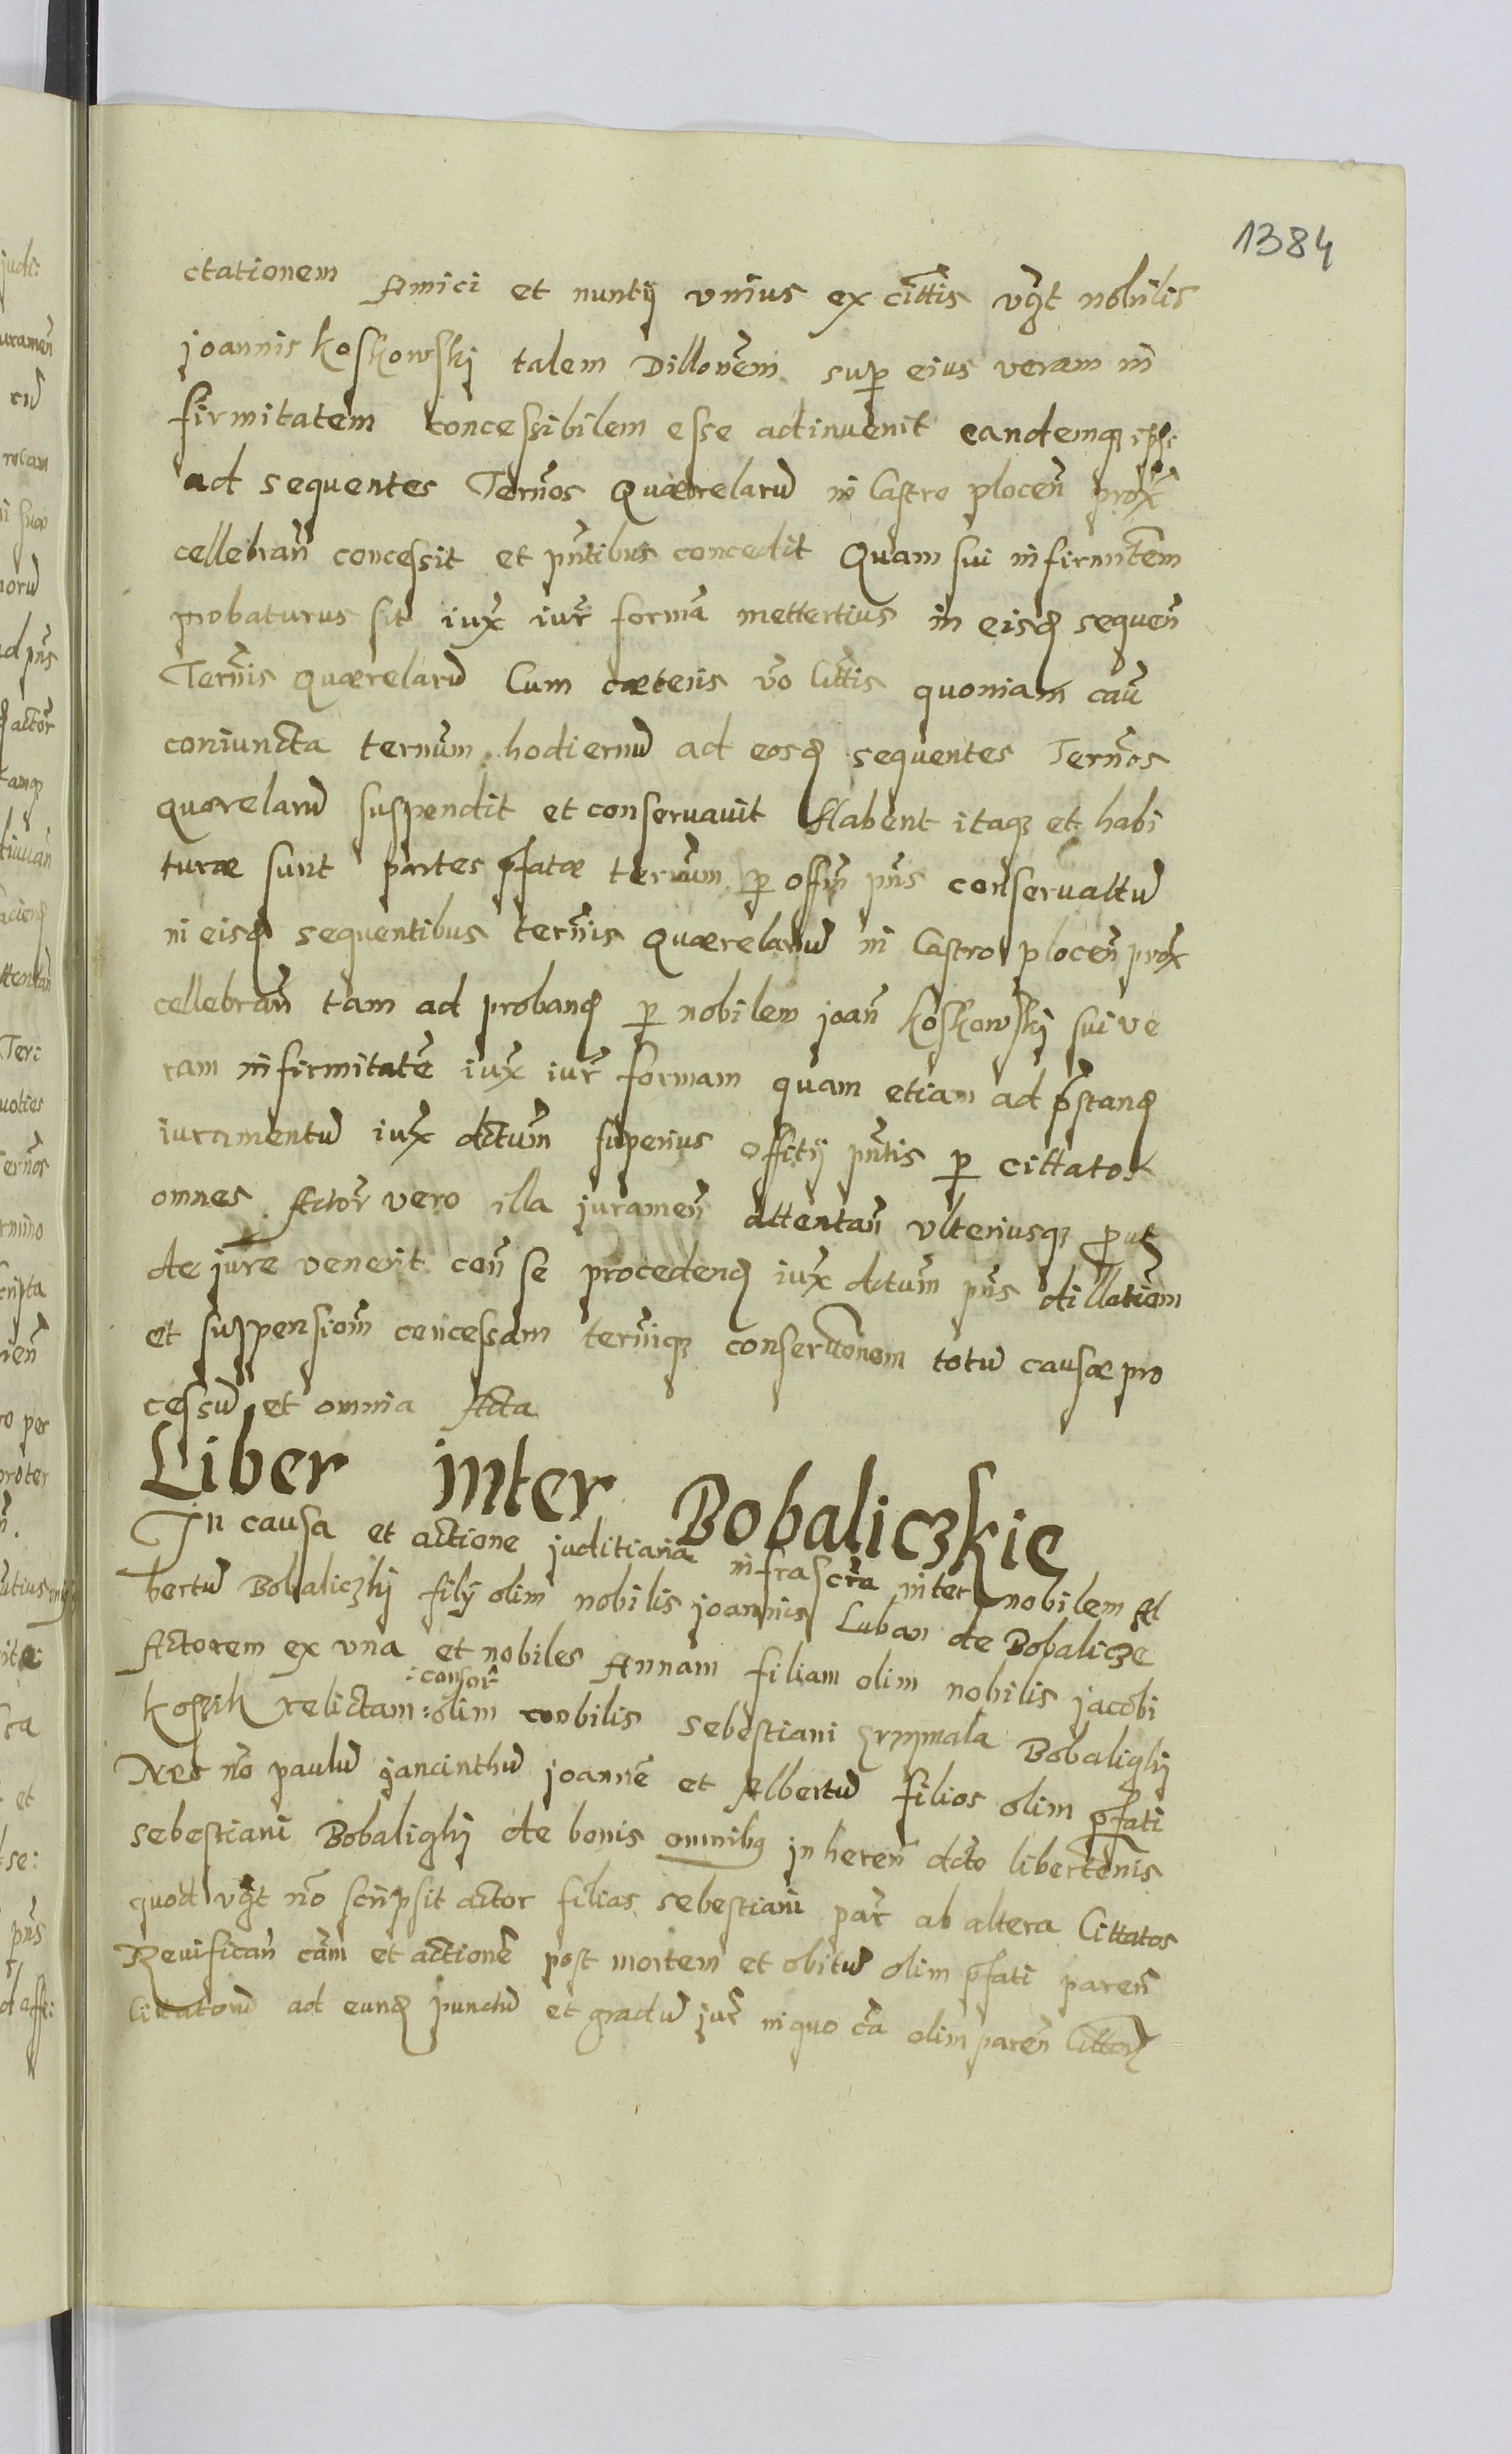 1384
ctationem Amici et nuntij vnius ex cittis vgt nobilis
joannis Koskowskj talem Dillonem sup eius veram in
firmitatem concessibilem esse adinuenit eandemq ipsi
ad sequentes Termos Quærelaru in Castro plocen prox
cellebran concessit et pntibus concedit Quam sui infirmitem
probaturus sit iux iur forma mettertius in eisd sequen
Termis Quærelaru Cum cæteris vo Cittis quoniam cau
coniuncta termum hodiernu ad eosd sequentes Termos
quærelaru suspendit et conseruauit Habent itaq et habi
turæ sunt partes pfatæ termum p offm pns conseruattu
in eisd sequentibus termis Quærelaru in Castro plocen prox
cellebran tam ad proband p nobilem joan Koskowskj sui ve
ram infirmitate iux iur formam quam etiam ad pstand
iuramentu iux dctum superius Offitij pntis p cittatos
omnes Actor vero illa juramen attentan vlteriusq prut
de jure venerit con se procedend iux dctum pns dillatiem
et suspensiom concessam termiq conserutionem totu causæ pro
cessu et omnia Acta
Liber inter Bobaliczkie
In causa et actione juditiaria infrascra inter nobilem Al
bertu Bobaliczkj filij olim nobilis joannis Luban de Bobalicze
Actorem ex vna et nobiles Annam filiam olim nobilis jacobi
consor
relictam olim nobilis Sebestiani Bobalighj
Nec no paulu jancinthu joanne et Albertu filios olim pfati
sebestiani Bobalighj de bonis omnibq in heren dcto libertonis
quod vgt no scripsit actor filias sebestiani par ab altera Cittatos
Reuifican cam et actione post mortem et obitu olim pfati paren
Cittatoru ad eund punctu et gradu jur in quo ca olim paren Cittor